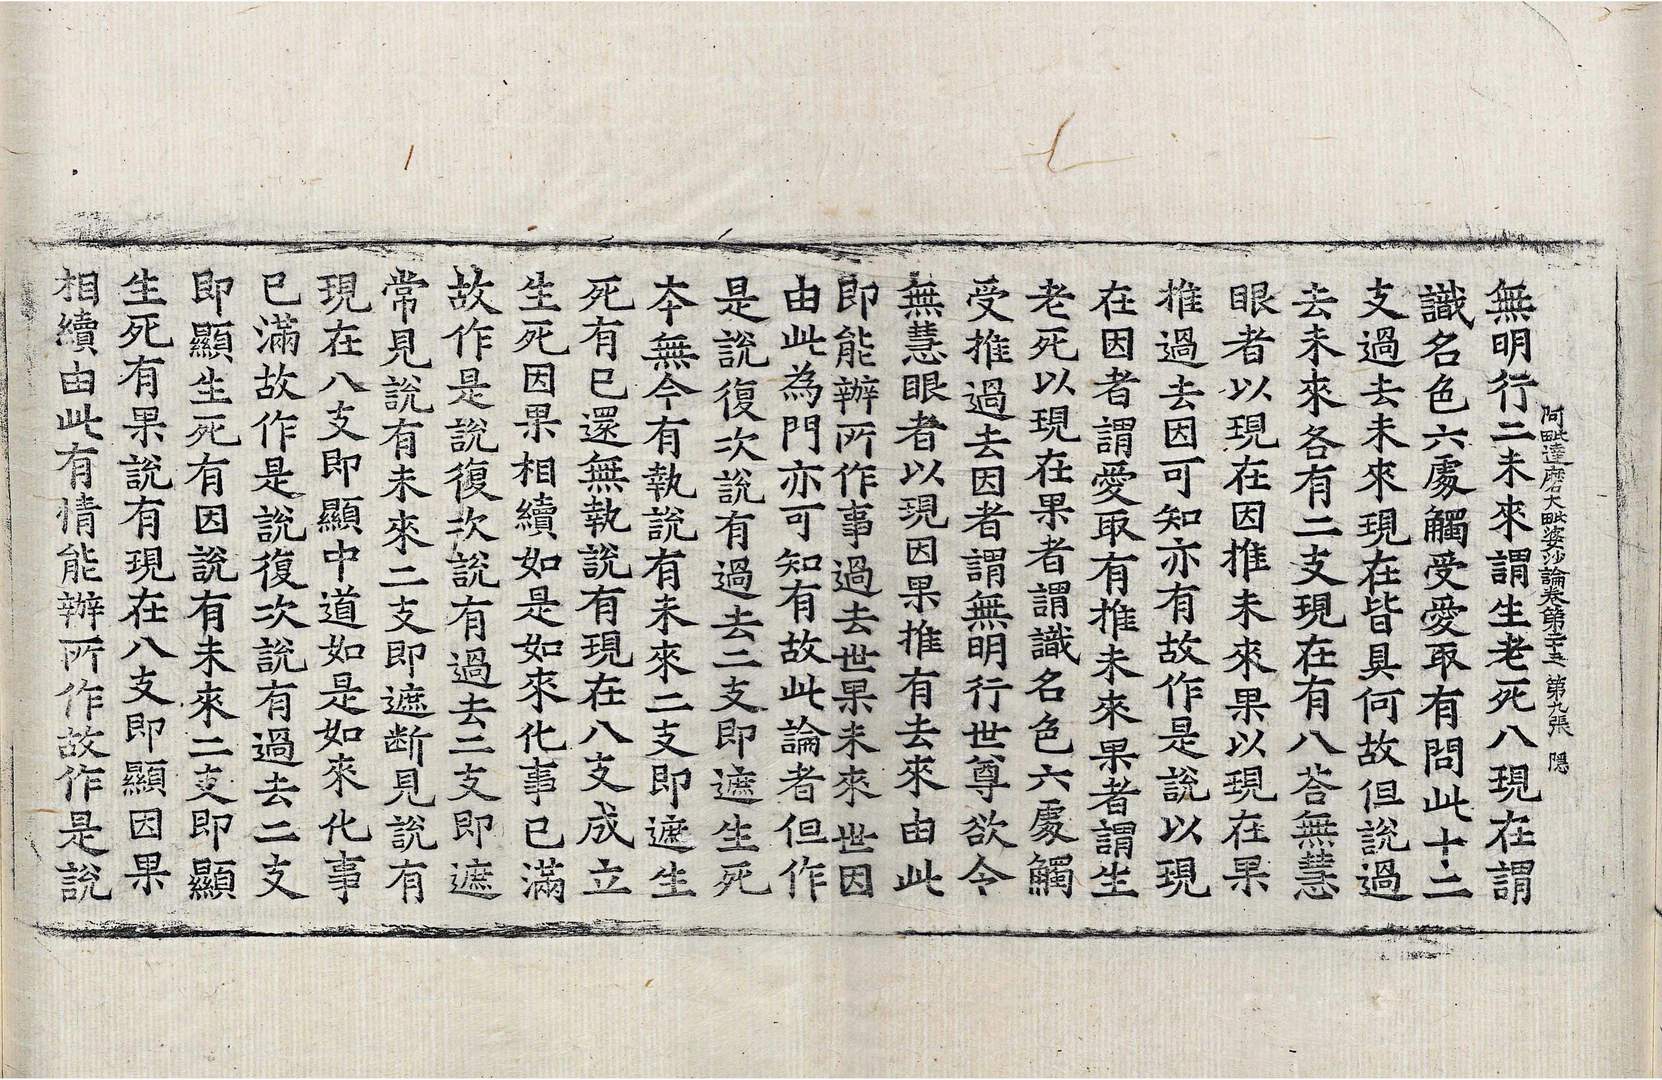 阿毗達磨大毗婆沙論卷第二十五 第九張 隱
無明行二未來謂生老死八現在謂
識名色六處觸受愛取有問此十二
支過去未來現在皆具何故但說過
去未來各有二支現在有八荅無慧
眼者以現在因推未來果以現在果
推過去因可知亦有故作是說以現
在因者謂愛取有推未來果者謂生
老死以現在果者謂識名色六處觸
受推過去因者謂無明行世尊欲令
無慧眼者以現因果推有去來由此
即能辦所作事過去世果未來世因
由此為門亦可知有故此論者但作
是說復次說有過去二支即遮生死
本無今有執說有未來二支即遮生
死有已還無執說有現在八支成立
生死因果相續如是如來化事已滿
故作是說復次說有過去二支即遮
常見說有未來二支即遮断見說有
現在八支即顯中道如是如來化事
已滿故作是說復次說有過去二支
即顯生死有因說有未來二支即顯
生死有果說有現在八支即顯因果
相續由此有情能辦所作故作是說